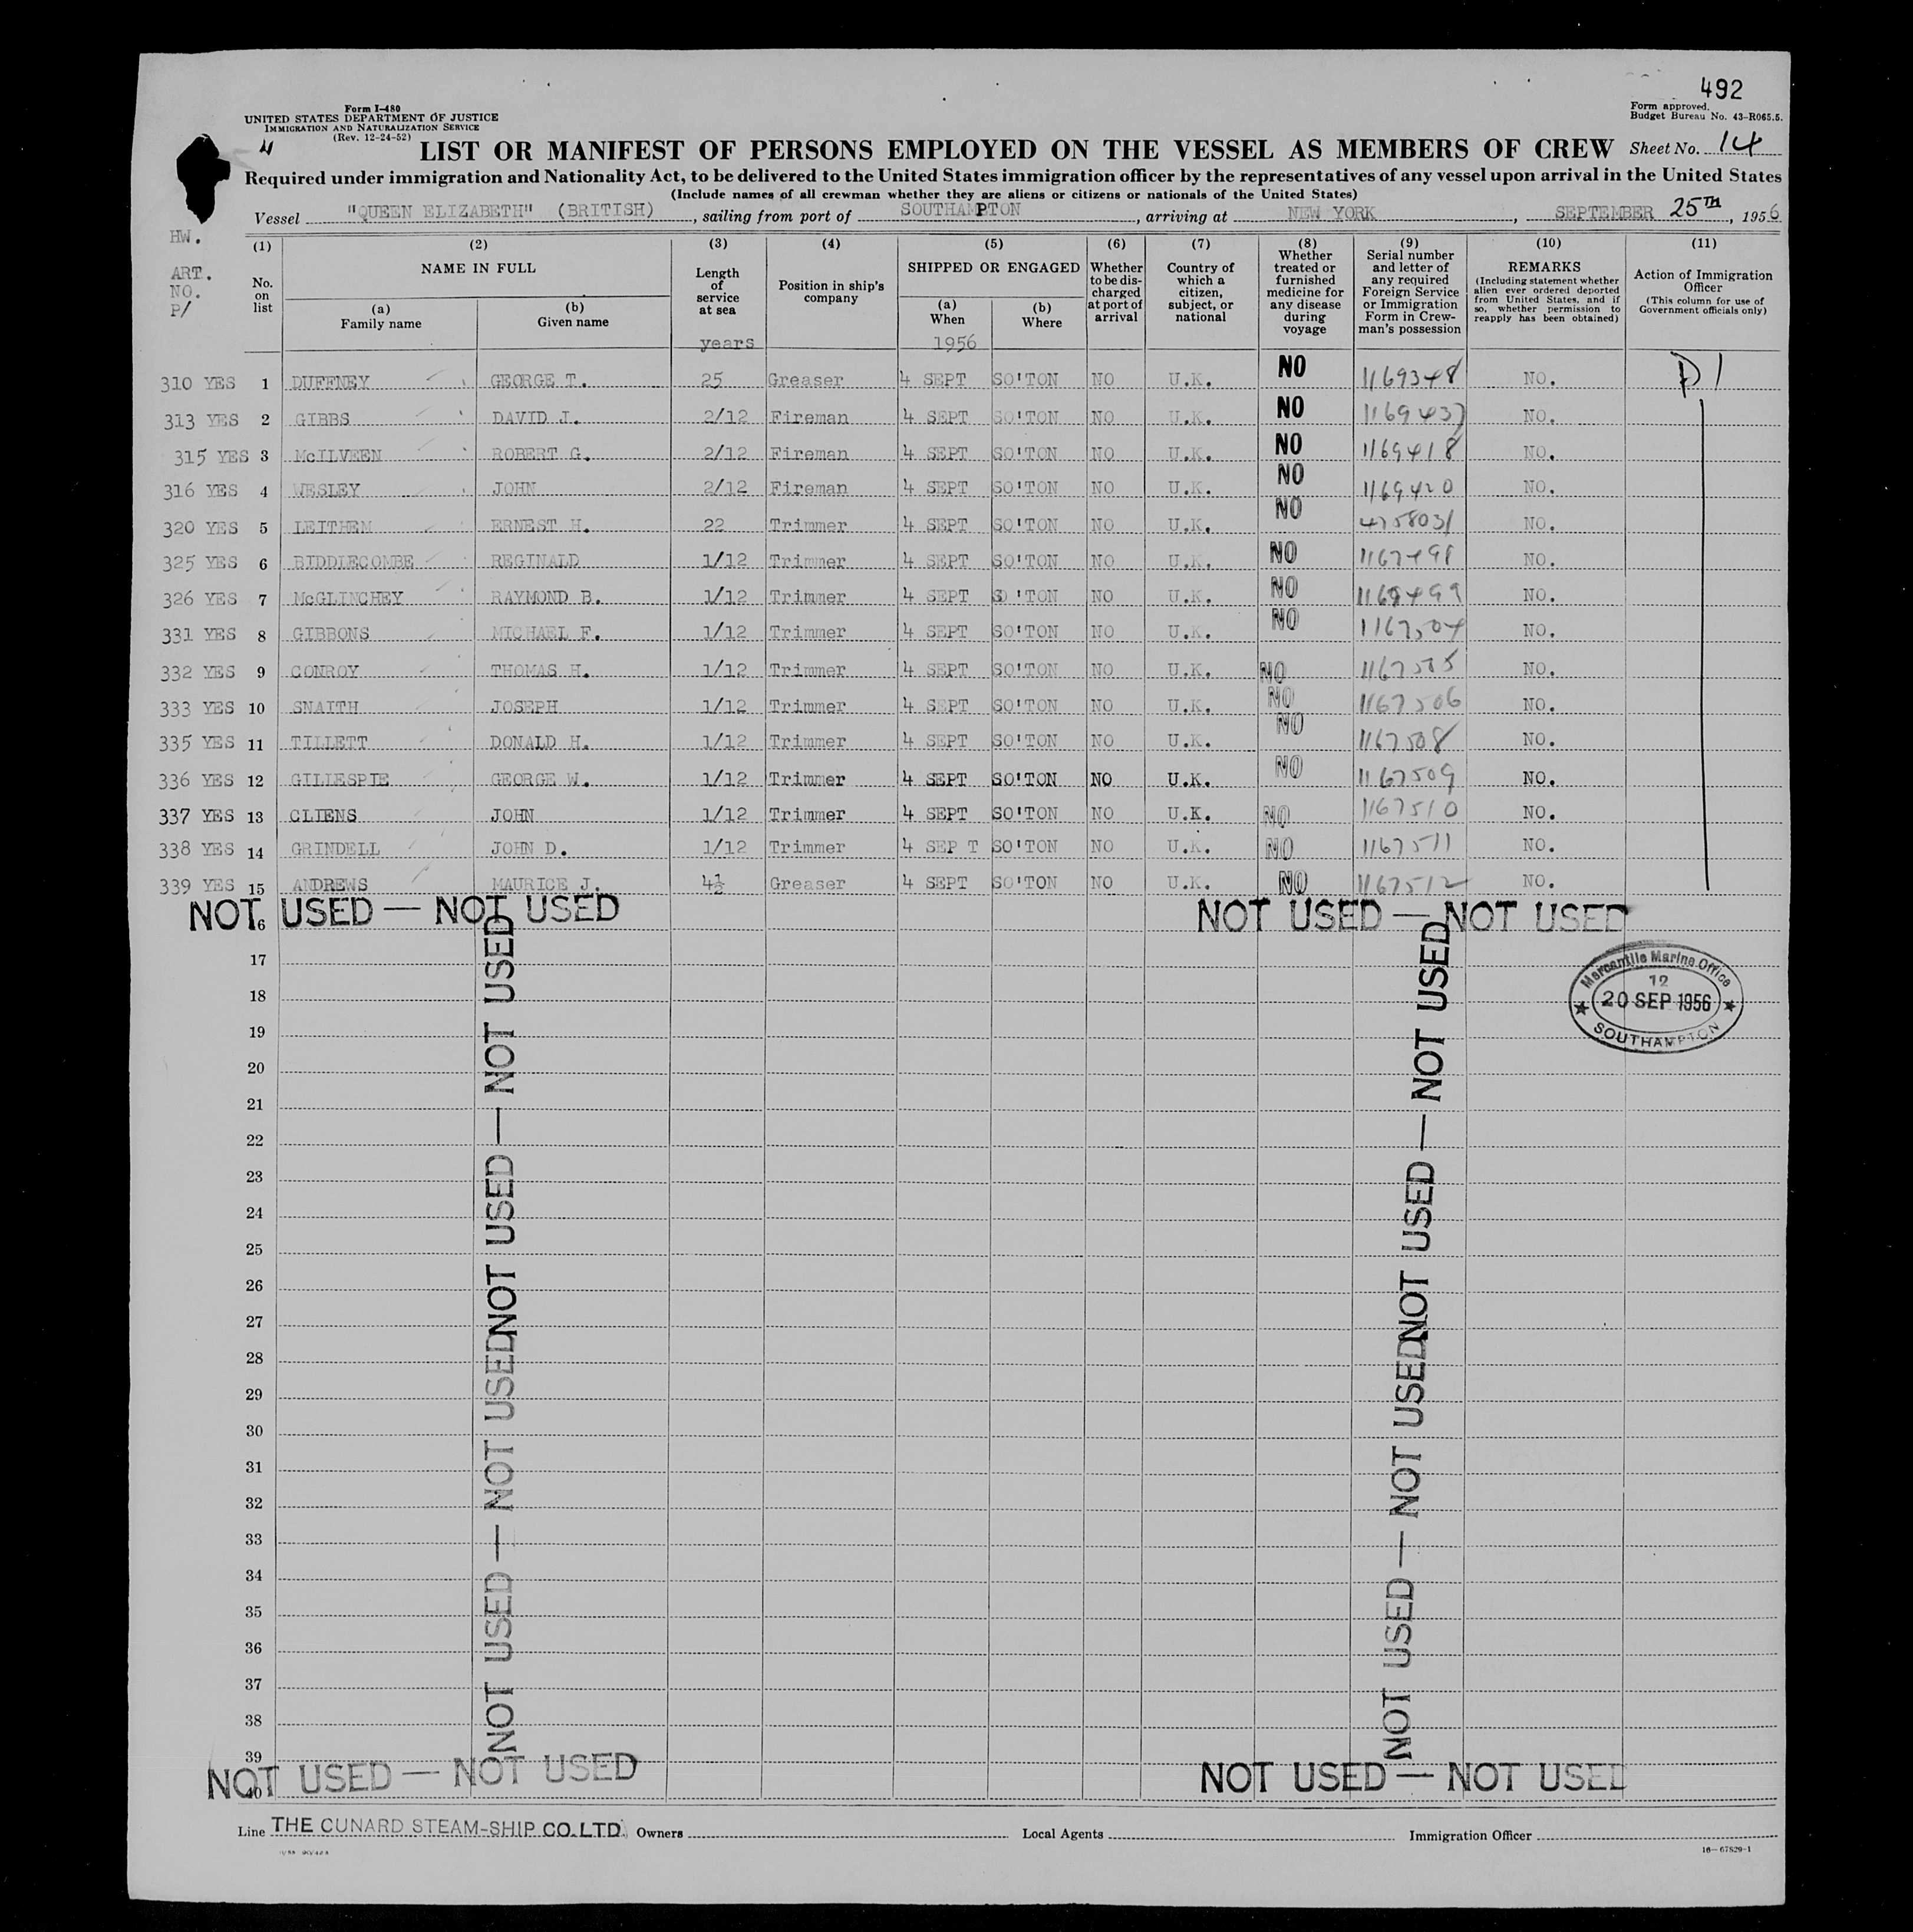 492
Form I-480
UNITED STATES DEPARTMENT OF JUSTICE
IMMIGRATION AND NATURALIZATION SERVICE
(Rev. 12-24-52)
Form approved.
Budget Bureau No. 43-R065.5.
4
LIST OR MANIFEST OF PERSONS EMPLOYED ON THE VESSEL AS MEMBERS OF CREW Sheet No. 14
Required under immigration and Nationality Act, to be delivered to the United States immigration officer by the representatives of any vessel upon arrival in the United States
(Include names of all crewman whether they are aliens or citizens or nationals of the United States)
Vessel "QUEEN ELIZABETH" (BRITISH), sailing from port of SOUTHAMPTON, arriving at NEW YORK, SEPTEMBER 25TH, 1956
HW.
ART.
NO.
P/
(1) No. on list
(2) NAME IN FULL
(a) Family name
(b) Given name
(3) Length of service at sea
years
(4) Position in ship's company
(5) SHIPPED OR ENGAGED
(a) When
1956
(b) Where
(6) Whether to be discharged at port of arrival
(7) Country of which a citizen, subject, or national
(8) Whether treated or furnished medicine for any disease during voyage
(9) Serial number and letter of any required Foreign Service or Immigration Form in Crewman's possession
(10) REMARKS
(Including statement whether alien ever ordered deported from United States, and if so, whether permission to reapply has been obtained)
(11) Action of Immigration Officer
(This column for use of Government officials only)
310 YES 1 DUFFNEY GEORGE T. 25 Greaser 4 SEPT SO'TON NO U.K. NO 1169348 NO. D1
313 YES 2 GIBBS DAVID J. 2/12 Fireman 4 SEPT SO'TON NO U.K. NO 1169437 NO.
315 YES 3 McILVEEN ROBERT G. 2/12 Fireman 4 SEPT SO'TON NO U.K. NO 1169418 NO.
316 YES 4 WESLEY JOHN 2/12 Fireman 4 SEPT SO'TON NO U.K. NO 1169420 NO.
320 YES 5 LEITHEM ERNEST H. 22 Trimmer 4 SEPT SO'TON NO U.K. NO 4758031 NO.
325 YES 6 BIDDLECOMBE REGINALD 1/12 Trimmer 4 SEPT SO'TON NO U.K. NO 1167498 NO.
326 YES 7 McGLINCHEY RAYMOND B. 1/12 Trimmer 4 SEPT SO'TON NO U.K. NO 1167499 NO.
331 YES 8 GIBBONS MICHAEL F. 1/12 Trimmer 4 SEPT SO'TON NO U.K. NO 1167504 NO.
332 YES 9 CONROY THOMAS H. 1/12 Trimmer 4 SEPT SO'TON NO U.K. NO 1167505 NO.
333 YES 10 SNAITH JOSEPH 1/12 Trimmer 4 SEPT SO'TON NO U.K. NO 1167506 NO.
335 YES 11 TILLETT DONALD H. 1/12 Trimmer 4 SEPT SO'TON NO U.K. NO 1167508 NO.
336 YES 12 GILLESPIE GEORGE W. 1/12 Trimmer 4 SEPT SO'TON NO U.K. NO 1167509 NO.
337 YES 13 CLIENS JOHN 1/12 Trimmer 4 SEPT SO'TON NO U.K. NO 1167510 NO.
338 YES 14 GRINDELL JOHN D. 1/12 Trimmer 4 SEP T SO'TON NO U.K. NO 1167511 NO.
339 YES 15 ANDREWS MAURICE J. 4½ Greaser 4 SEPT SO'TON NO U.K. NO 1167512 NO.
NOT USED — NOT USED
NOT USED — NOT USED
16
17
18
19
20
21
22
23
24
25
26
27
28
29
30
31
32
33
34
35
36
37
38
39
40
NOT USED — NOT USED
NOT USED — NOT USED
NOT USED — NOT USED
NOT USED — NOT USED
Mercantile Marine Office
12
20 SEP 1956
SOUTHAMPTON
NOT USED — NOT USED
NOT USED — NOT USED
Line THE CUNARD STEAM-SHIP CO. LTD. Owners Local Agents Immigration Officer
16—67829-1